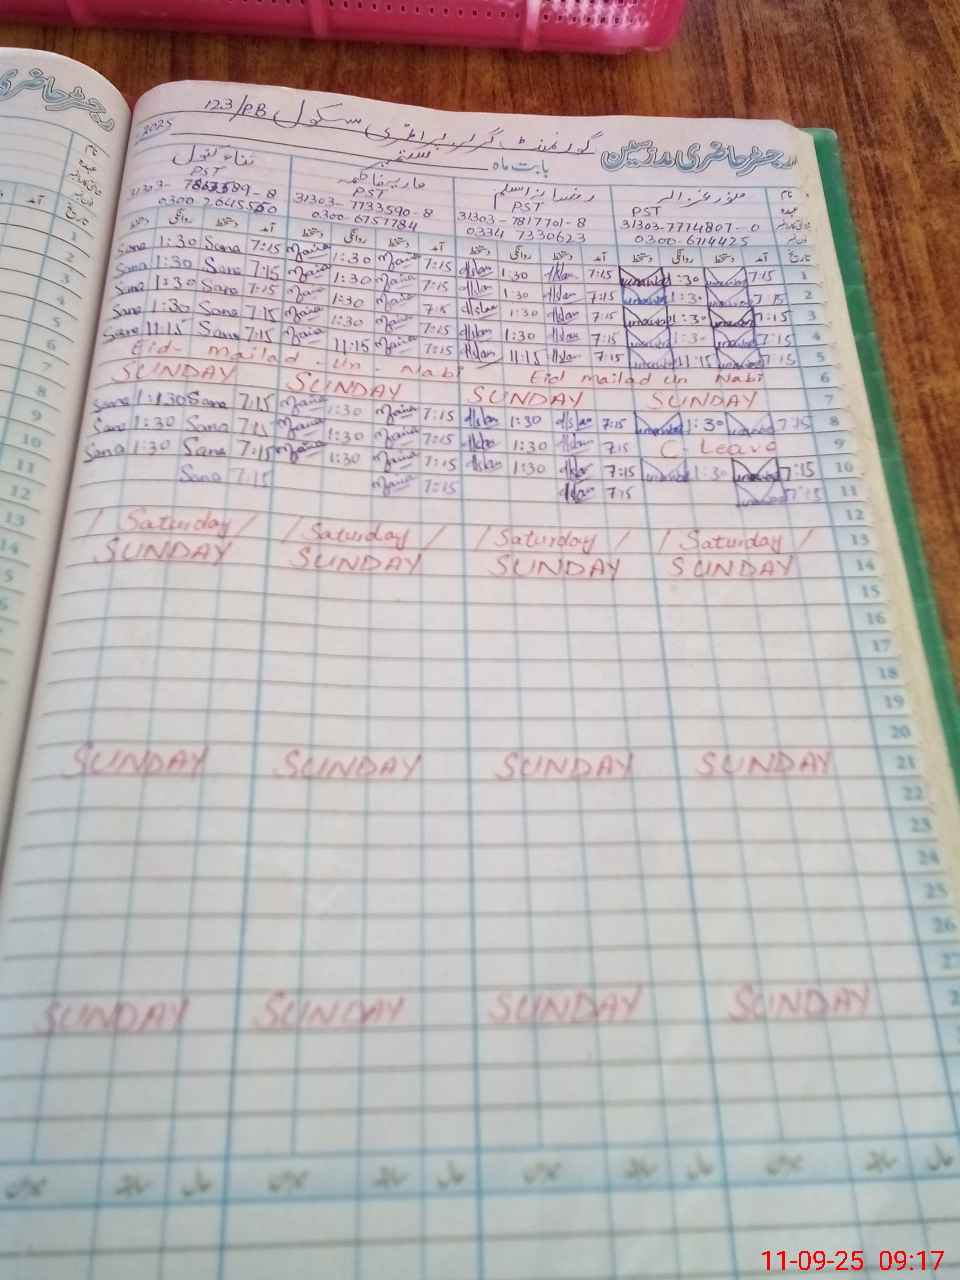 رجسٹر حاضری مدرسین گورنمنٹ گرلز پرائمری سکول 123/PB
بابت ماہ ستمبر 2025
نام
PST PST PST PST
31303-7774807-0 31303-7817701-8 31303-7733590-8
0300-6714425 0334 7330623 0300-6757784 0300 2645550
تاریخ آمد دستخط روانگی دستخط آمد دستخط روانگی دستخط آمد دستخط روانگی دستخط آمد دستخط روانگی دستخط
Sana 1:30 Sana 7:15 Maria 1:30 Maria 7:15 Aslam 1:30 Aslam 7:15 1:30 7:15 1
Sana 1:30 Sana 7:15 Maria 1:30 Maria 7:15 Aslam 1:30 Aslam 7:15 1:30 7:15 2
Sana 1:30 Sana 7:15 Maria 1:30 Maria 7:15 Aslam 1:30 Aslam 7:15 1:30 7:15 3
Sana 1:30 Sana 7:15 Maria 1:30 Maria 7:15 Aslam 1:30 Aslam 7:15 1:30 7:15 4
Sana 11:15 Sana 7:15 Maria 11:15 Maria 7:15 Aslam 11:15 Aslam 7:15 11:15 7:15 5
Eid- Mailad Un - Nabi Eid mailad Un Nabi 6
SUNDAY SUNDAY SUNDAY SUNDAY 7
Sana 1:30 Sana 7:15 Maria 1:30 Maria 7:15 Aslam 1:30 Aslam 7:15 1:30 7:15 8
Sana 1:30 Sana 7:15 Maria 1:30 Maria 7:15 Aslam 1:30 Aslam 7:15 C- Leave 9
Sana 1:30 Sana 7:15 Maria 1:30 Maria 7:15 Aslam 1:30 Aslam 7:15 1:30 7:15 10
Sana 7:15 Maria 7:15 Aslam 7:15 7:15 11
12
/ Saturday / / Saturday / / Saturday / / Saturday / 13
SUNDAY SUNDAY SUNDAY SUNDAY 14
15
16
17
18
19
20
SUNDAY SUNDAY SUNDAY SUNDAY 21
22
23
24
25
26
27
SUNDAY SUNDAY SUNDAY SUNDAY
11-09-25 09:17